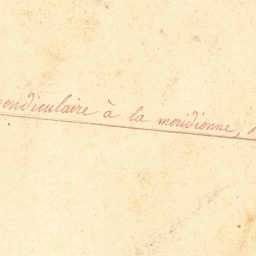 pendiculaire à la méridienne,